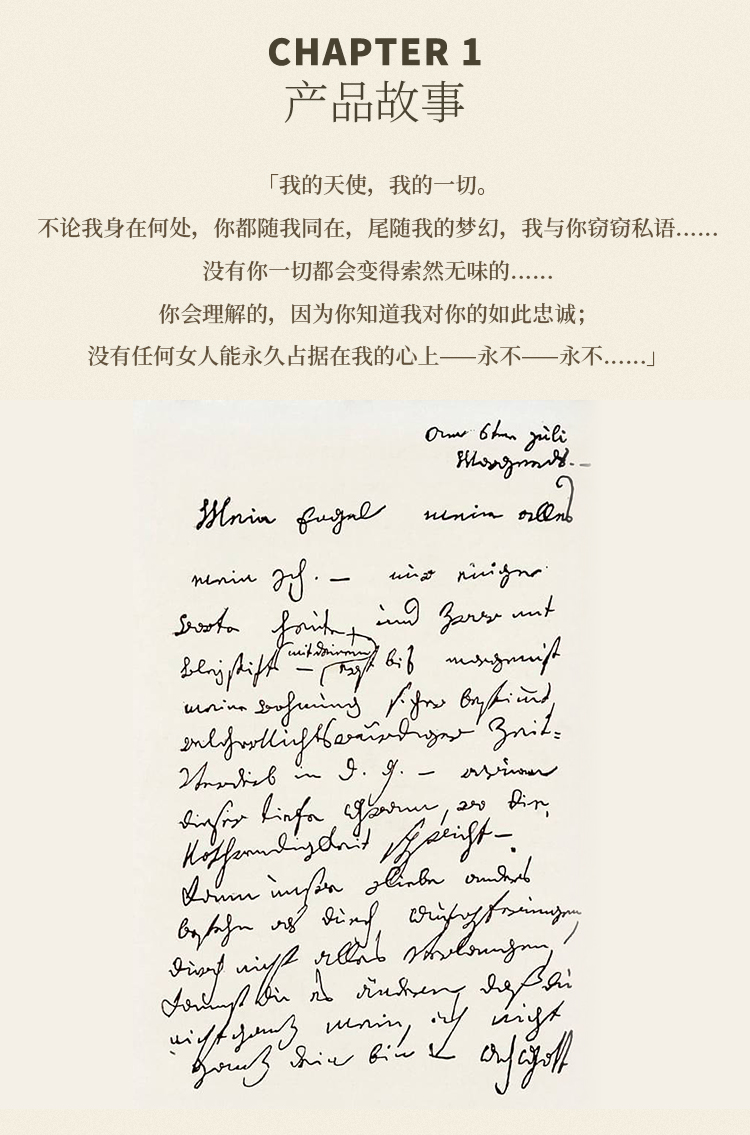 CHAPTER 1
产品故事
「我的天使，我的一切。
不论我身在何处，你都随我同在，尾随我的梦幻，我与你窃窃私语……
没有你一切都会变得索然无味的……
你会理解的，因为你知道我对你的如此忠诚；
没有任何女人能永久占据在我的心上——永不——永不……」
am 6ten juli
Morgends. –
Mein Engel mein alles
mein Ich. – nur einige
worte heute, und zwar mit
bleystift – mit deinem
bis morgen ist
meine wohnung sicher bestimt,
Zeit-
Verderb in d. g. – warum
dieser tiefe gram, wo die
Nothwendigkeit spricht –
Kann unsre Liebe anders
bestehn als durch aufopferungen,
durch nicht alles verlangen,
kannst du es ändern, daß du
nicht ganz mein, ich nicht
ganz dein bin –